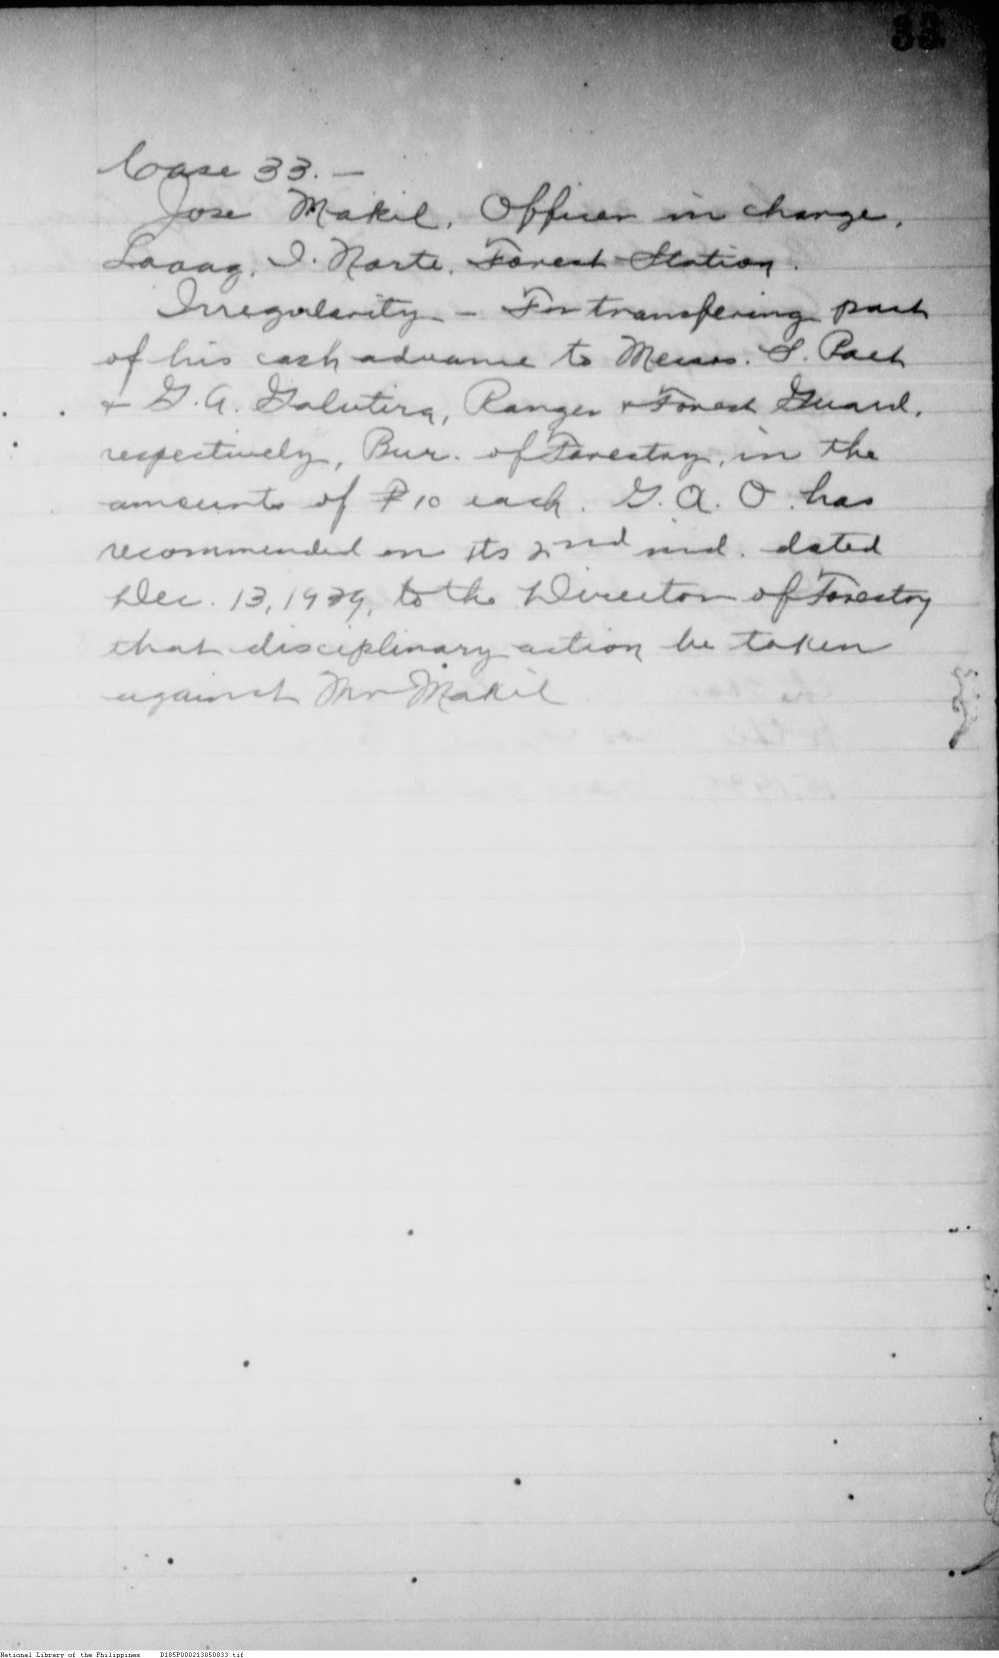 33
Case 33. —
Jose Makil, Officer in charge,
Laoag, I. Norte, Forest Station.
Irregularity — For transfering part
of his cash advance to Messrs. S. Paet
& G. A. Galutira, Ranger & Forest Guard,
respectively, Bur. of Forestry, in the
amounts of ₱10 each. G. A. O. has
recommended on its 2nd ind. dated
Dec. 13, 1939, to the Director of Forestry
that disciplinary action be taken
against Mr Makil
National Library of the Philippines D185P000213850833.tif